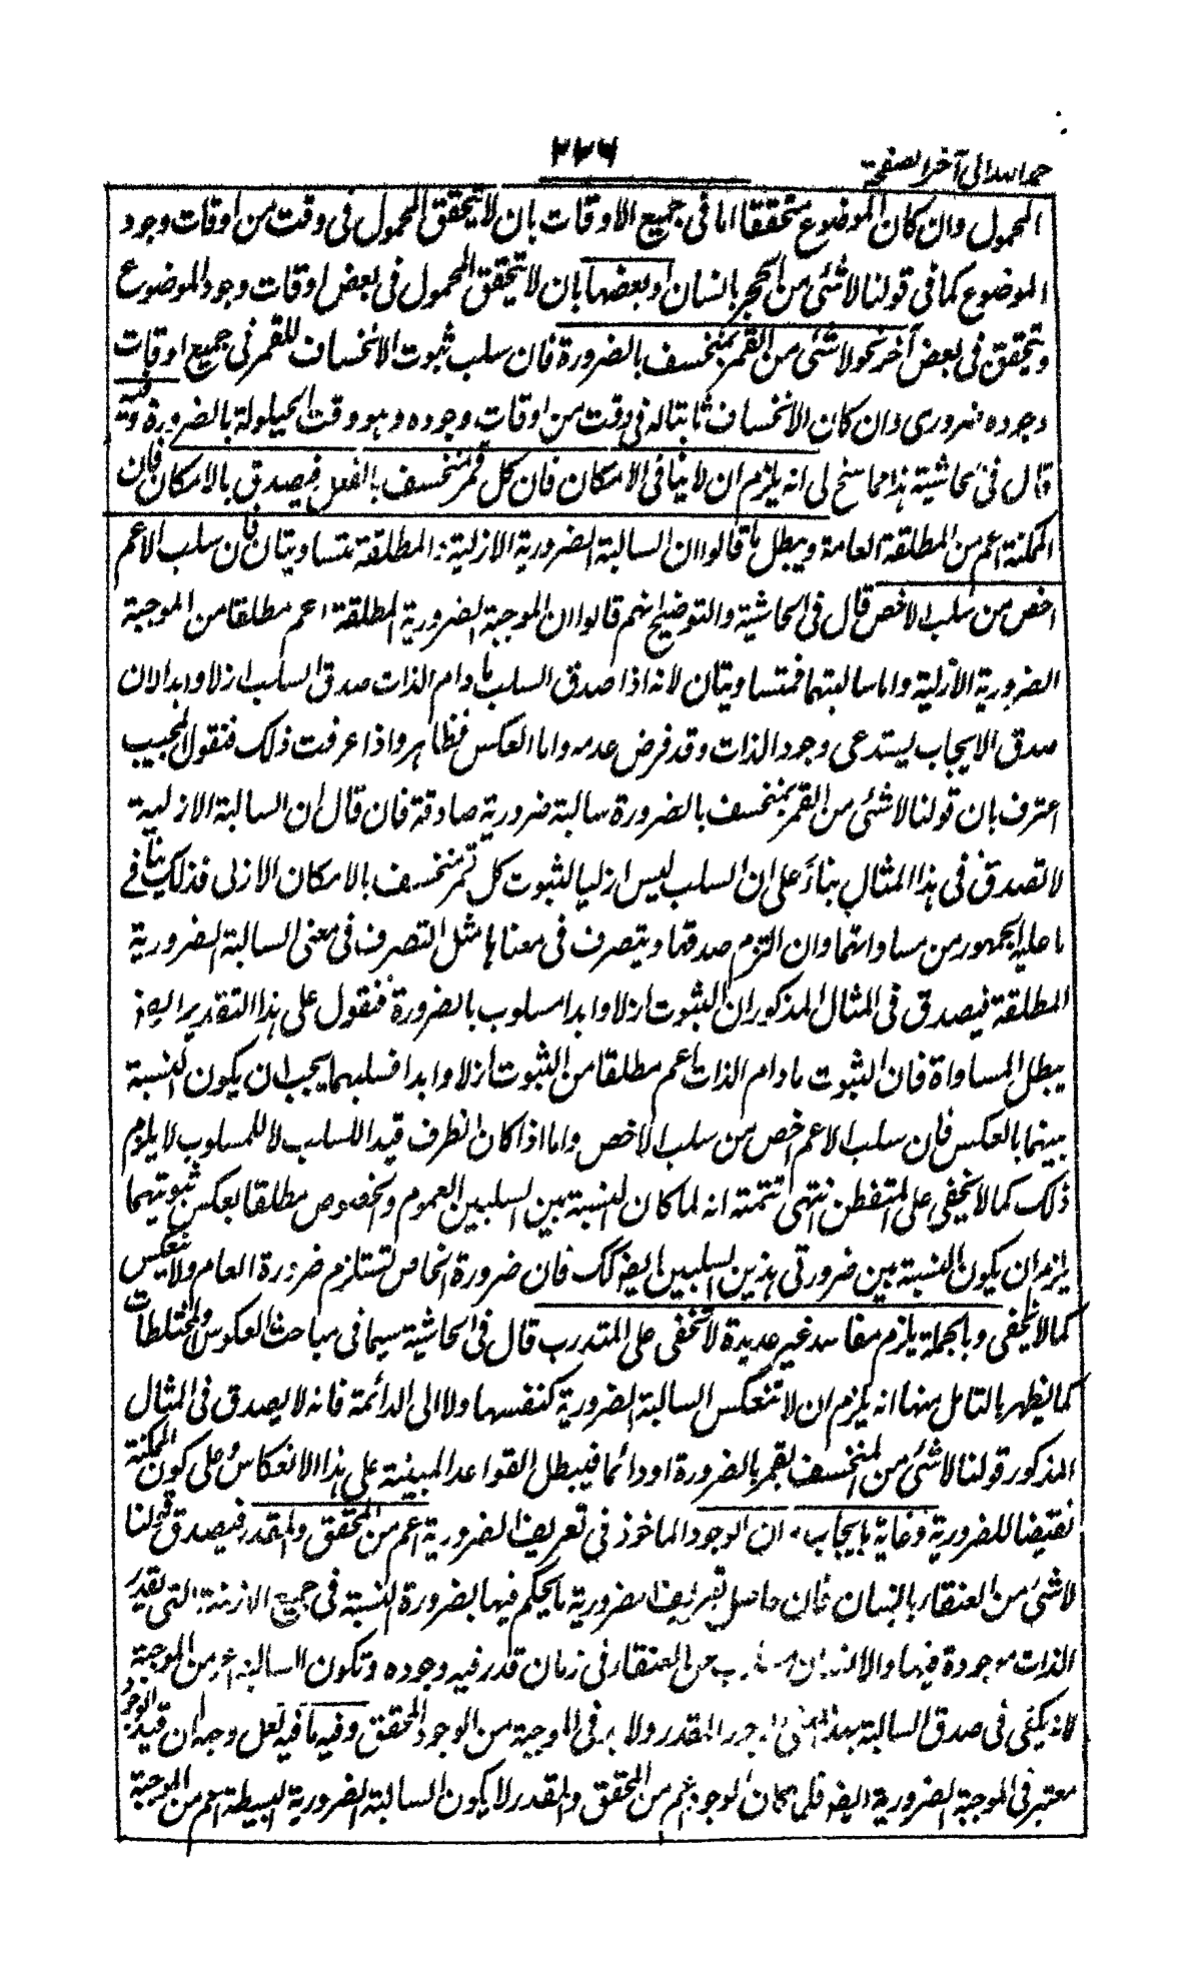 ٢٢٦
حمد الله الى آخر الصفحة
المحمول وان كان الموضوع متحققا اما فى جميع الاوقات بان لا يتحقق المحمول فى وقت من اوقات وجود
الموضوع كما فى قولنا لا شئ من الحجر بانسان او بعضها بان لا يتحقق المحمول فى بعض اوقات وجود الموضوع
ويتحقق فى بعض آخر نحو لا شئ من القمر بمنخسف بالضرورة فان سلب ثبوت الانخساف للقمر فى جميع اوقات
وجوده ضرورى وان كان الانخساف ثابتا له فى وقت من اوقات وجوده وهو وقت الحيلولة بالضرورة وفيه
قال فى الحاشية هذا مما سنح لى انه يلزم ان لا ينافى الامكان فان كل قمر منخسف بالفعل فيصدق بالامكان فان
الممكنة اعم من المطلقة العامة ويبطل ما قالوا ان السالبة الضرورية الازلية والمطلقة متساويتان فان سلب الاعم
اخص من سلب الاخص قال فى الحاشية والتوضيح انهم قالوا ان الموجبة الضرورية المطلقة اعم مطلقا من الموجبة
الضرورية الازلية واما سالبتهما فمتساويتان لانه اذا صدق السلب ما دام الذات صدق السلب ازلا وابدا لان
صدق الايجاب يستدعى وجود الذات وقد فرض عدمه واما العكس فظاهر واذا عرفت ذلك فنقول المجيب
اعترف بان قولنا لا شئ من القمر بمنخسف بالضرورة سالبة ضرورية صادقة فان قال ان السالبة الازلية
لا تصدق فى هذا المثال بناءً على ان السلب ليس ازليا لثبوت كل قمر منخسف بالامكان الازلى فذلك ينافى
ما عليه الجمهور من مساواتهما وان التزم صدقها ويتصرف فى معناها مثل التصرف فى معنى السالبة الضرورية
المطلقة فيصدق فى المثال المذكور ان الثبوت ازلا وابدا مسلوب بالضرورة فنقول على هذا التقدير ايضا
يبطل المساواة فان الثبوت ما دام الذات اعم مطلقا من الثبوت ازلا وابدا فسلبهما يجب ان يكون النسبة
بينهما بالعكس فان سلب الاعم اخص من سلب الاخص واما اذا كان الظرف قيدا للسلب لا للمسلوب لا يلزم
ذلك كما لا يخفى على المتفطن انتهى تتمته انه لما كان النسبة بين السلبين العموم والخصوص مطلقا بعكس ثبوتيهما
يلزم ان يكون النسبة بين ضرورتى هذين السلبين ايضا كك فان ضرورة الخاص تستلزم ضرورة العام ولا ينعكس
كما لا يخفى وبالجملة يلزم مفاسد غير عديدة لا تخفى على المتدرب قال فى الحاشية سيما فى مباحث العكوس والمختلطات
كما يظهر بالتامل منها انه يلزم ان لا تنعكس السالبة الضرورية كنفسها ولا الى الدائمة فانه لا يصدق فى المثال
المذكور قولنا لا شئ من المنخسف بقمر بالضرورة او دائما فيبطل القواعد المبينة على هذا الانعكاس وعلى كون الممكنة
نقيضا للضرورية وغاية ما يجاب به ان الوجود الماخوذ فى تعريف الضرورية اعم من المحقق والمقدر فيصدق قولنا
لا شئ من العنقاء بانسان فان حاصل تعريف الضرورية ما يحكم فيها بضرورة النسبة فى جميع الازمنة التى يقدر
الذات موجودة فيها والانسان مسلوب عن العنقاء فى زمان قدر فيه وجوده وتكون السالبة اعم من الموجبة
لانه يكفى فى صدق السالبة الوجود المقدر ولا بد فى الموجبة من الوجود المحقق وفيه ما فيه لعل وجهه ان قيد الوجود
معتبر فى الموجبة الضرورية ايضا فلما كان الوجود اعم من المحقق والمقدر لا يكون السالبة الضرورية البسيطة اعم من الموجبة